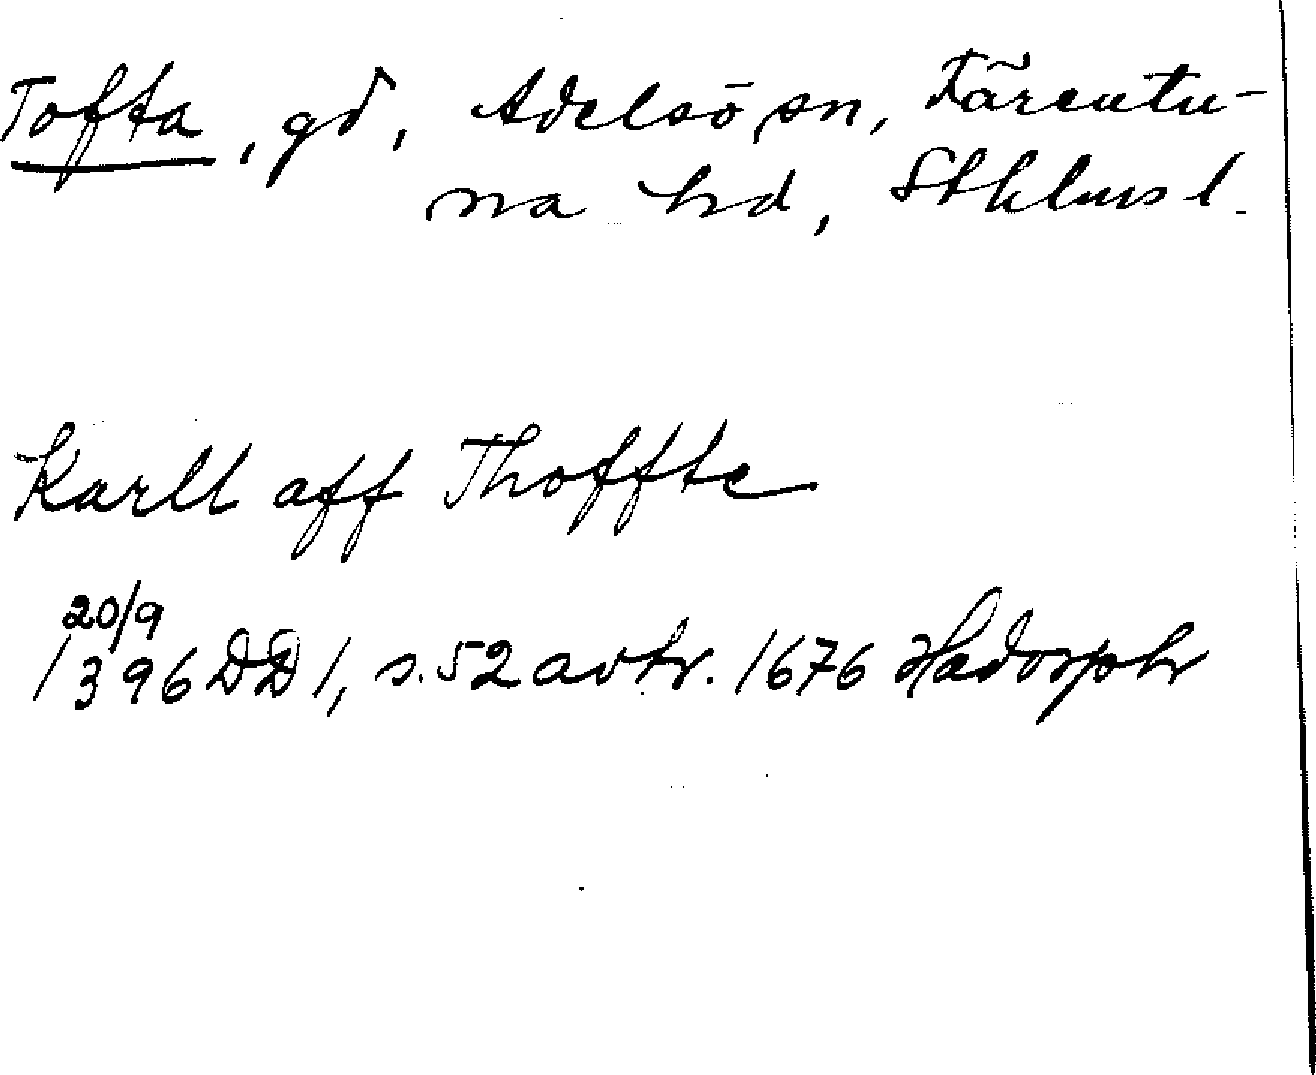 Tofta, gd, Adelsö sn, Färentu-
na hd, Sthlms l.
Karll aff Thoffte
20/9
1396 DD 1, s. 52 avtr. 1676 Hadorph